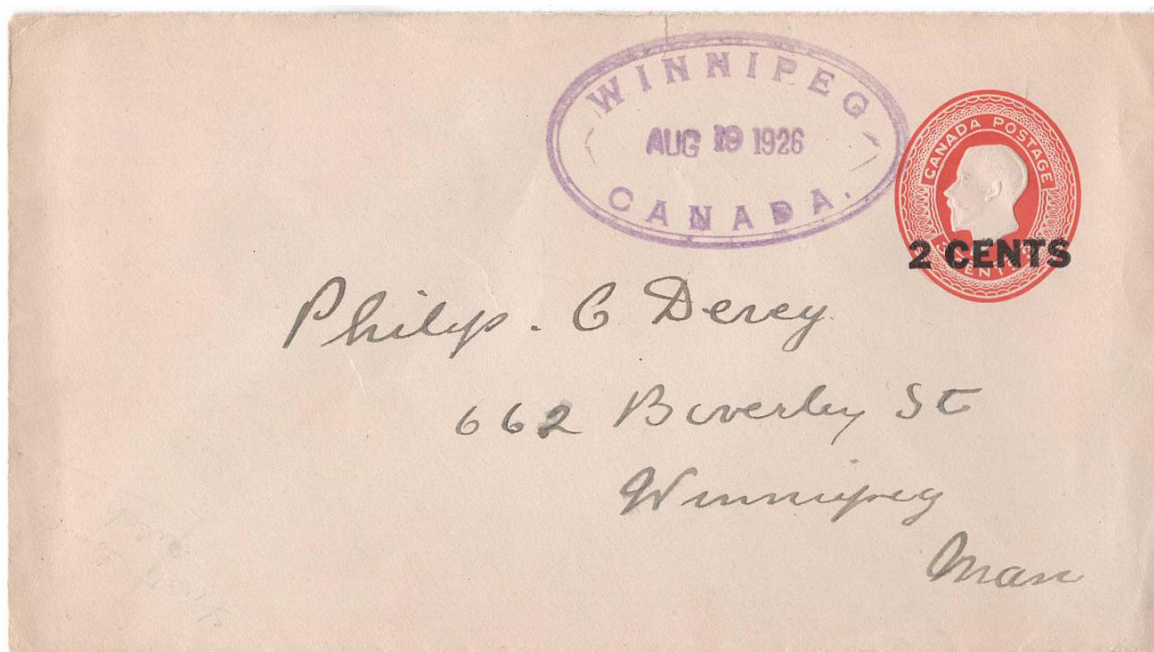 WINNIPEG
AUG 19 1926
CANADA.
CANADA POSTAGE
2 CENTS
Philip. C Derey
662 Beverley St
Winnipeg
Man